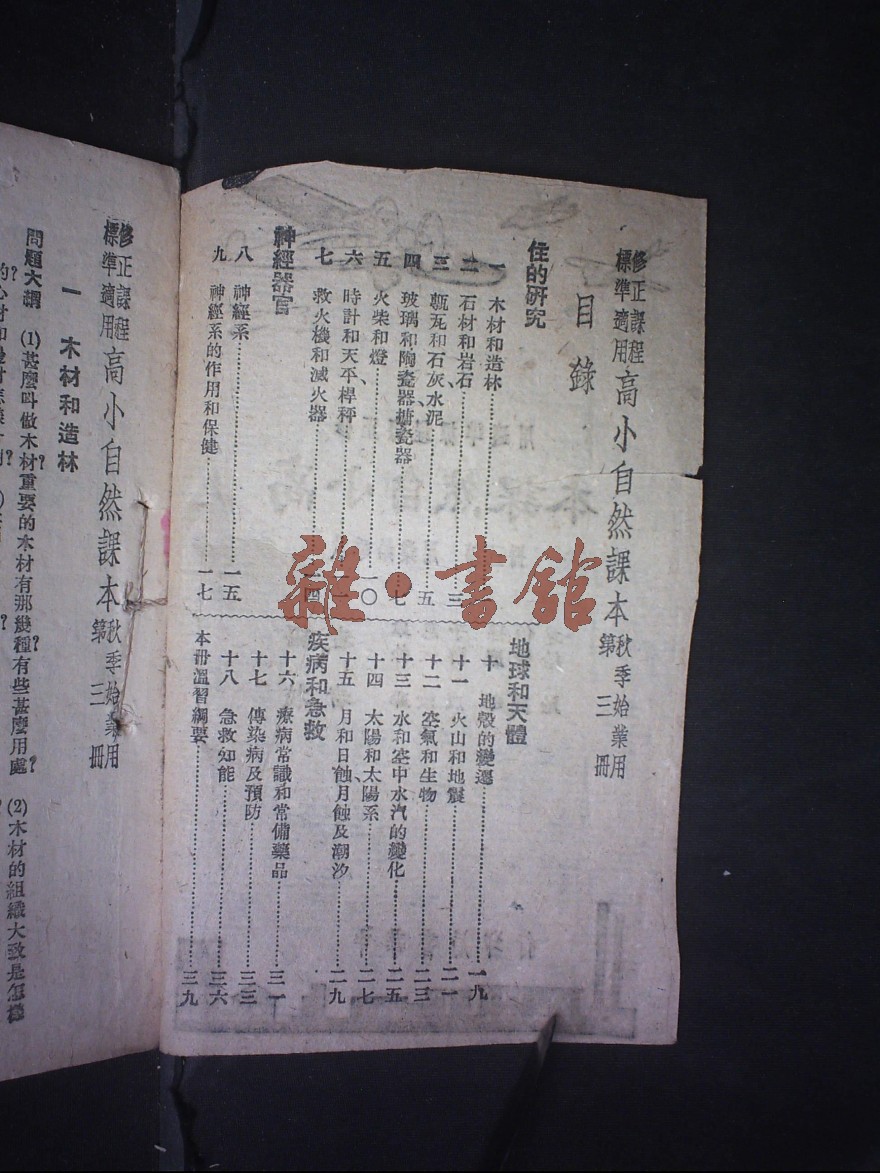 修正課程
標準適用
高小自然課本
秋季始業用
第三冊
目錄
住的研究
一 木材和造林
二 石材和岩石 三
三 甎瓦和石灰、水泥 五
四 玻璃和陶瓷器、搪瓷器 七
五 火柴和燈 一〇
六 時計和天平、桿秤
七 救火機和滅火器
神經器官
八 神經系 一五
九 神經系的作用和保健 一七
地球和天體
十 地殼的變遷 一九
十一 火山和地震 二一
十二 空氣和生物 二三
十三 水和空中水汽的變化 二五
十四 太陽和太陽系 二七
十五 月和日蝕、月蝕及潮汐 二九
疾病和急救
十六 療病常識和常備藥品 三一
十七 傳染病及預防 三三
十八 急救知能 三六
本冊溫習綱要 三九
雜·書館
修正課程
標準適用
高小自然課本
秋季始業用
第三冊
一 木材和造林
問題大綱 (1)甚麼叫做木材?重要的木材有那幾種?有些甚麼用處? (2)木材的組織大致是怎樣